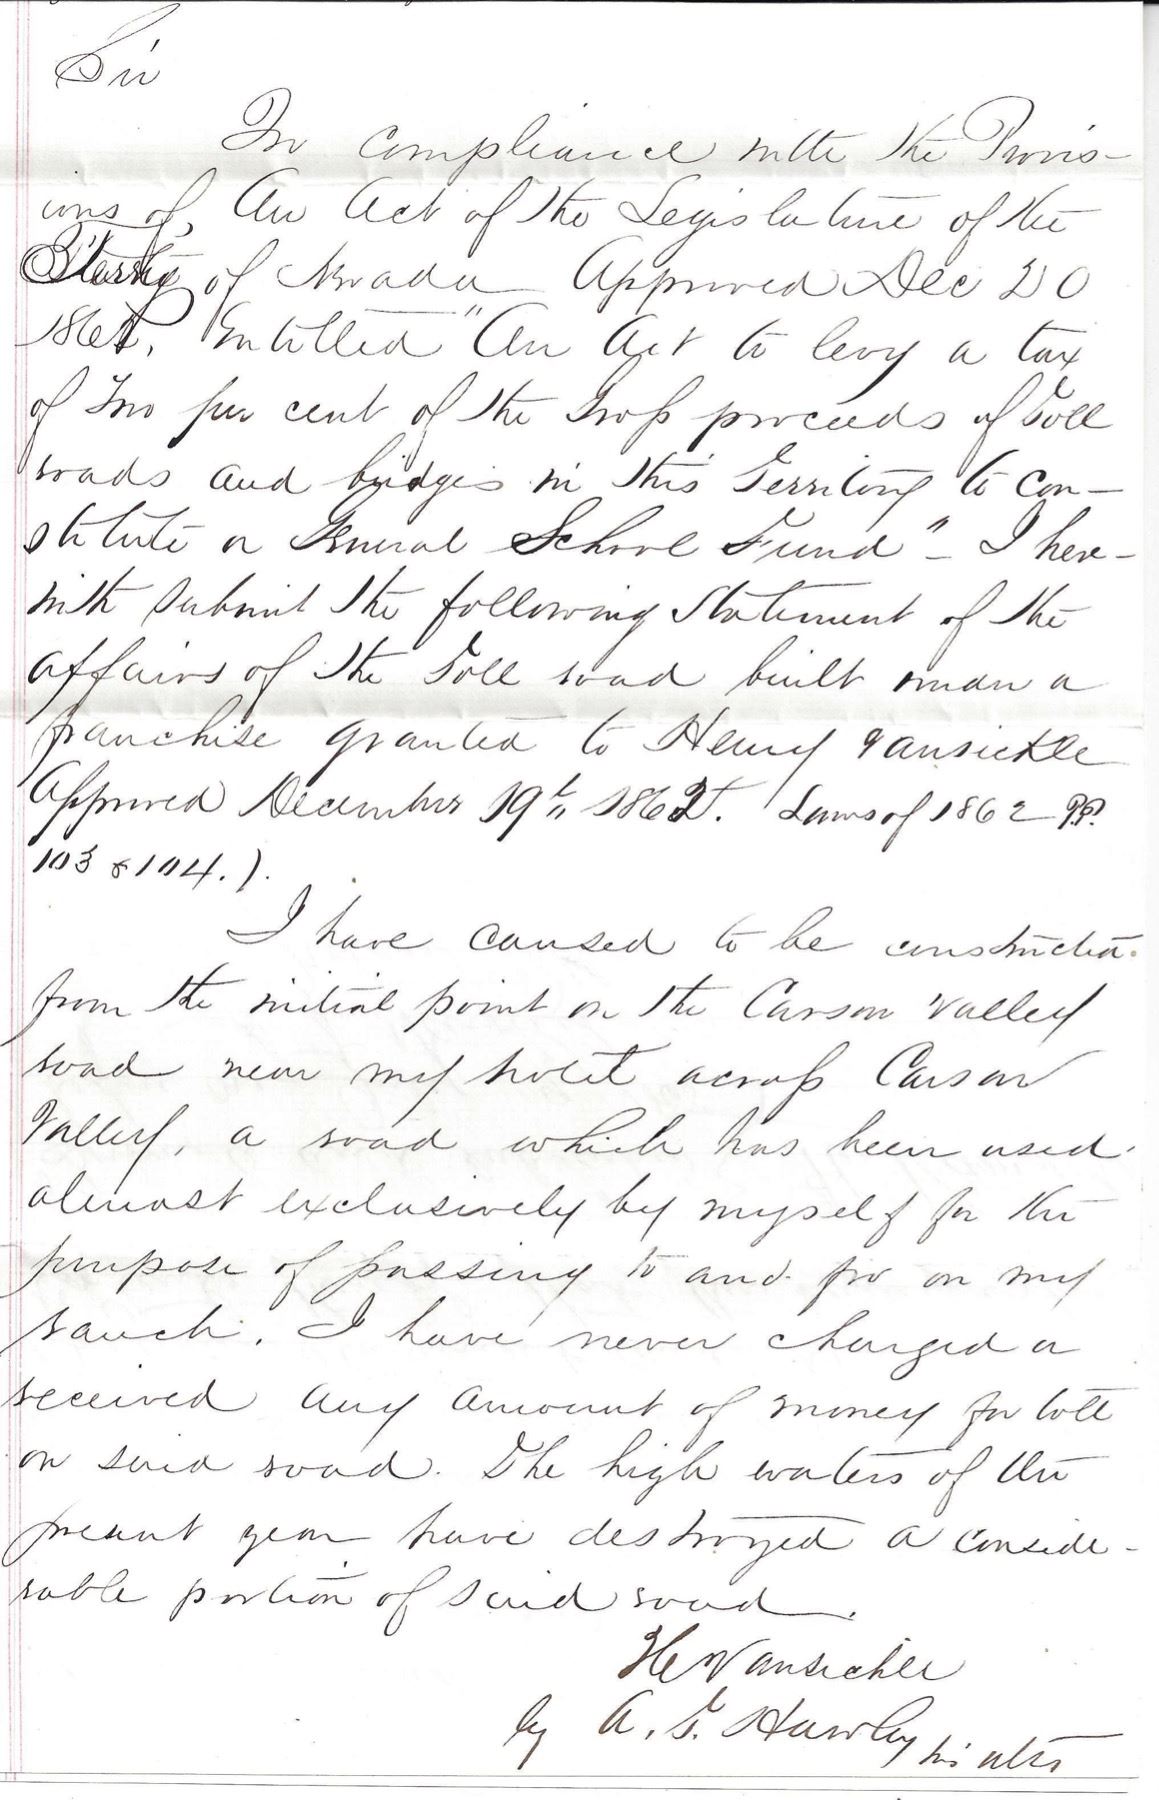 Sir
In compliance with the Provis-
ions of, An Act of the Legislature of the
of Nevada Approved Dec 20
1862, Entitled "An Act to levy a tax
of Two per cent of the Gross proceeds of Toll
roads and bridges in this Territory to con-
stitute a General School Fund" - I here-
with submit the following Statement of the
affairs of the Toll road built under a
franchise granted to Henry Vansickle
Approved December 19th, 1862. Laws of 1862 PP.
103 & 104.).
I have caused to be constructed
from the initial point on the Carson Valley
road near my hotel across Carson
Valley, a road which has been used
almost exclusively by myself for the
purpose of passing to and fro on my
ranch. I have never charged or
received any amount of money for toll
on said road. The high waters of the
present year have destroyed a conside-
rable portion of said road.
H Vansickle
by A. G. Hawley his atty